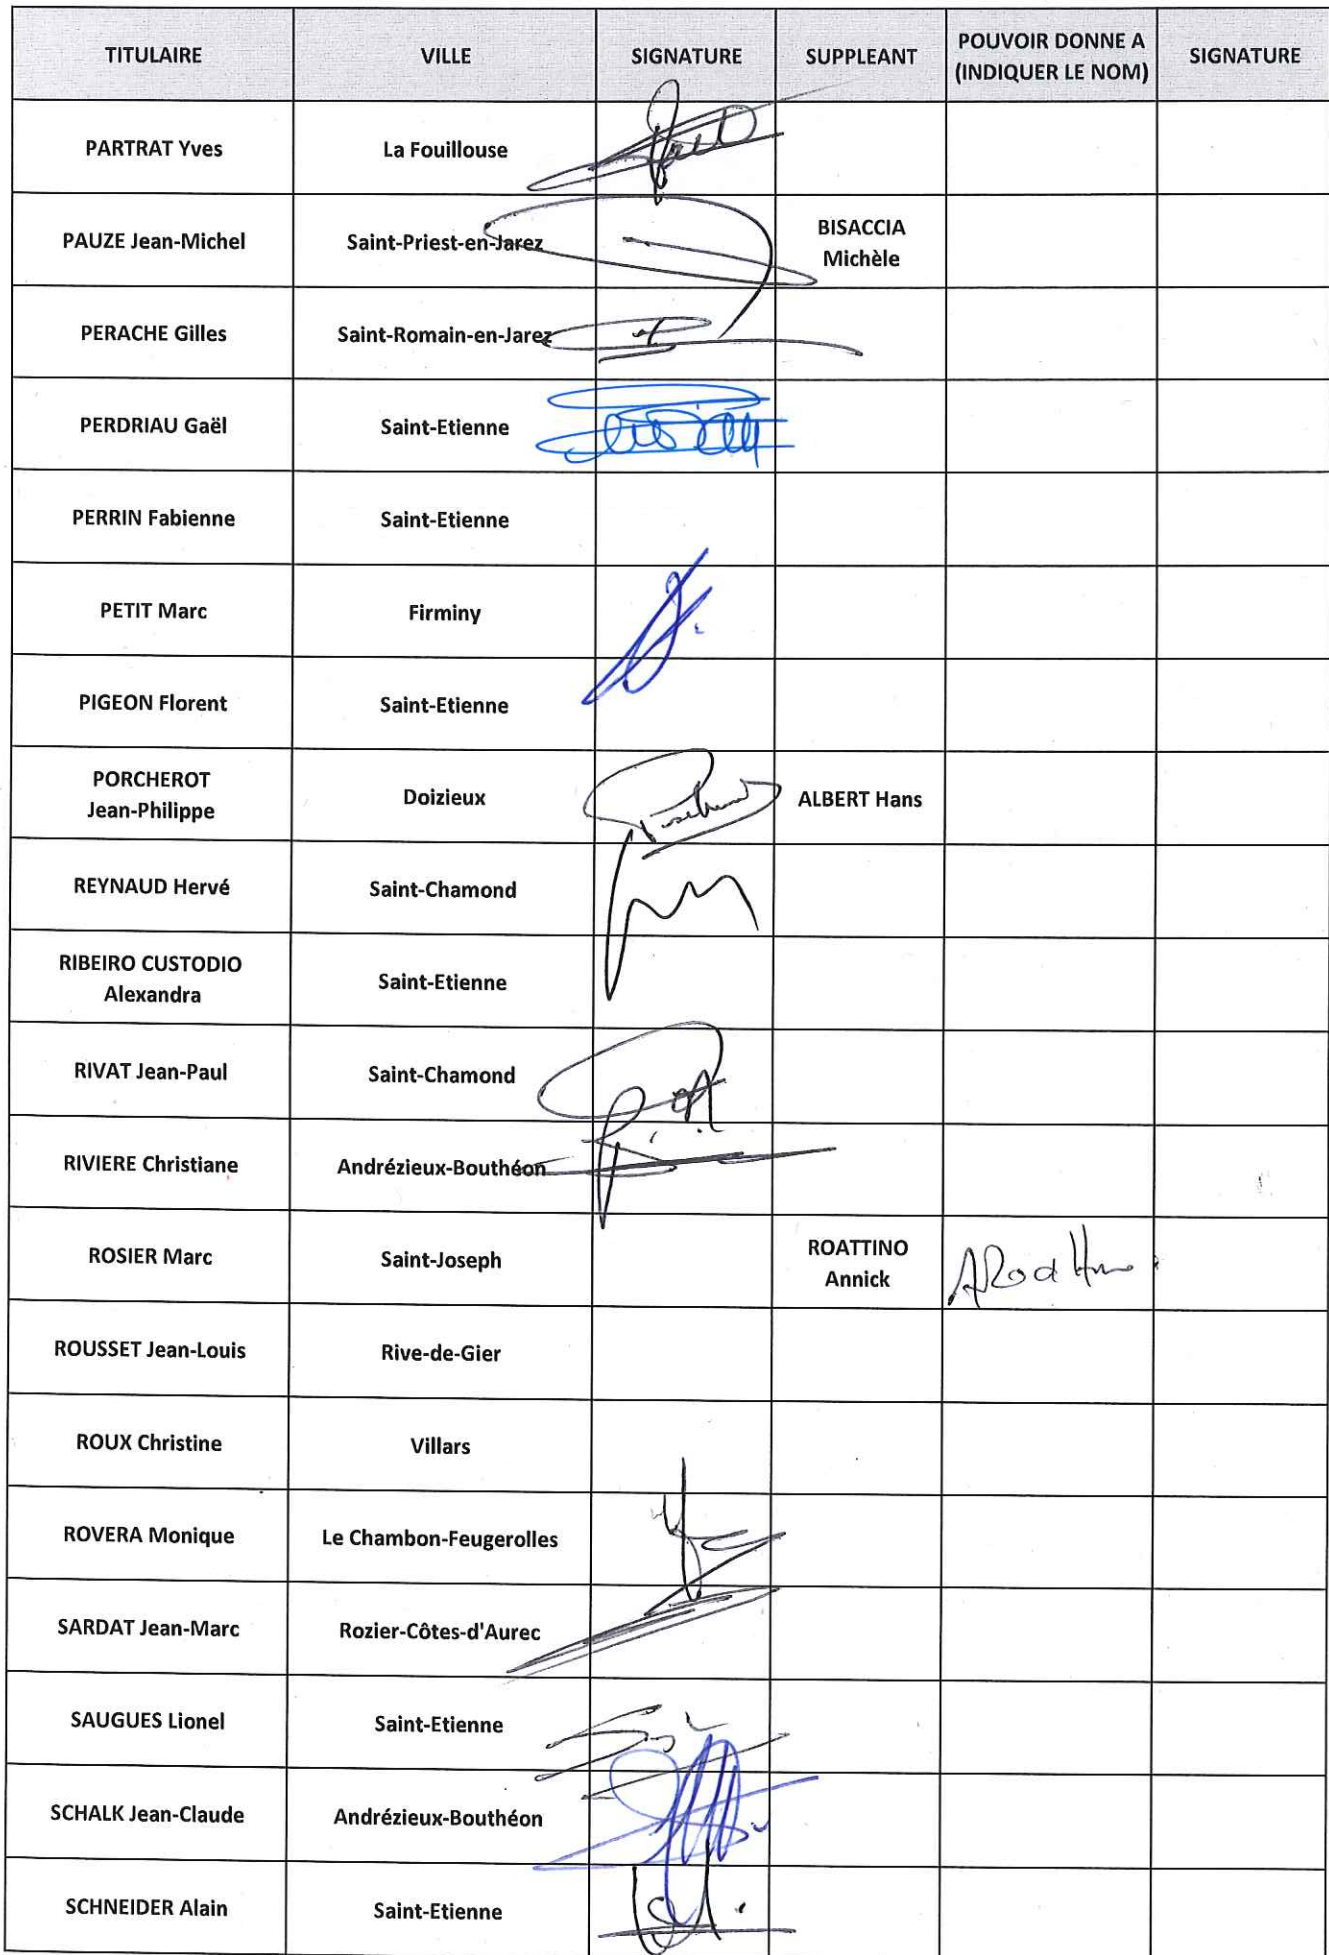 TITULAIRE VILLE SIGNATURE SUPPLEANT POUVOIR DONNE A (INDIQUER LE NOM) SIGNATURE
PARTRAT Yves La Fouillouse
PAUZE Jean-Michel Saint-Priest-en-Jarez BISACCIA Michèle
PERACHE Gilles Saint-Romain-en-Jarez
PERDRIAU Gaël Saint-Etienne
PERRIN Fabienne Saint-Etienne
PETIT Marc Firminy
PIGEON Florent Saint-Etienne
PORCHEROT Jean-Philippe Doizieux ALBERT Hans
REYNAUD Hervé Saint-Chamond
RIBEIRO CUSTODIO Alexandra Saint-Etienne
RIVAT Jean-Paul Saint-Chamond
RIVIERE Christiane Andrézieux-Bouthéon
ROSIER Marc Saint-Joseph ROATTINO Annick
ROUSSET Jean-Louis Rive-de-Gier
ROUX Christine Villars
ROVERA Monique Le Chambon-Feugerolles
SARDAT Jean-Marc Rozier-Côtes-d'Aurec
SAUGUES Lionel Saint-Etienne
SCHALK Jean-Claude Andrézieux-Bouthéon
SCHNEIDER Alain Saint-Etienne